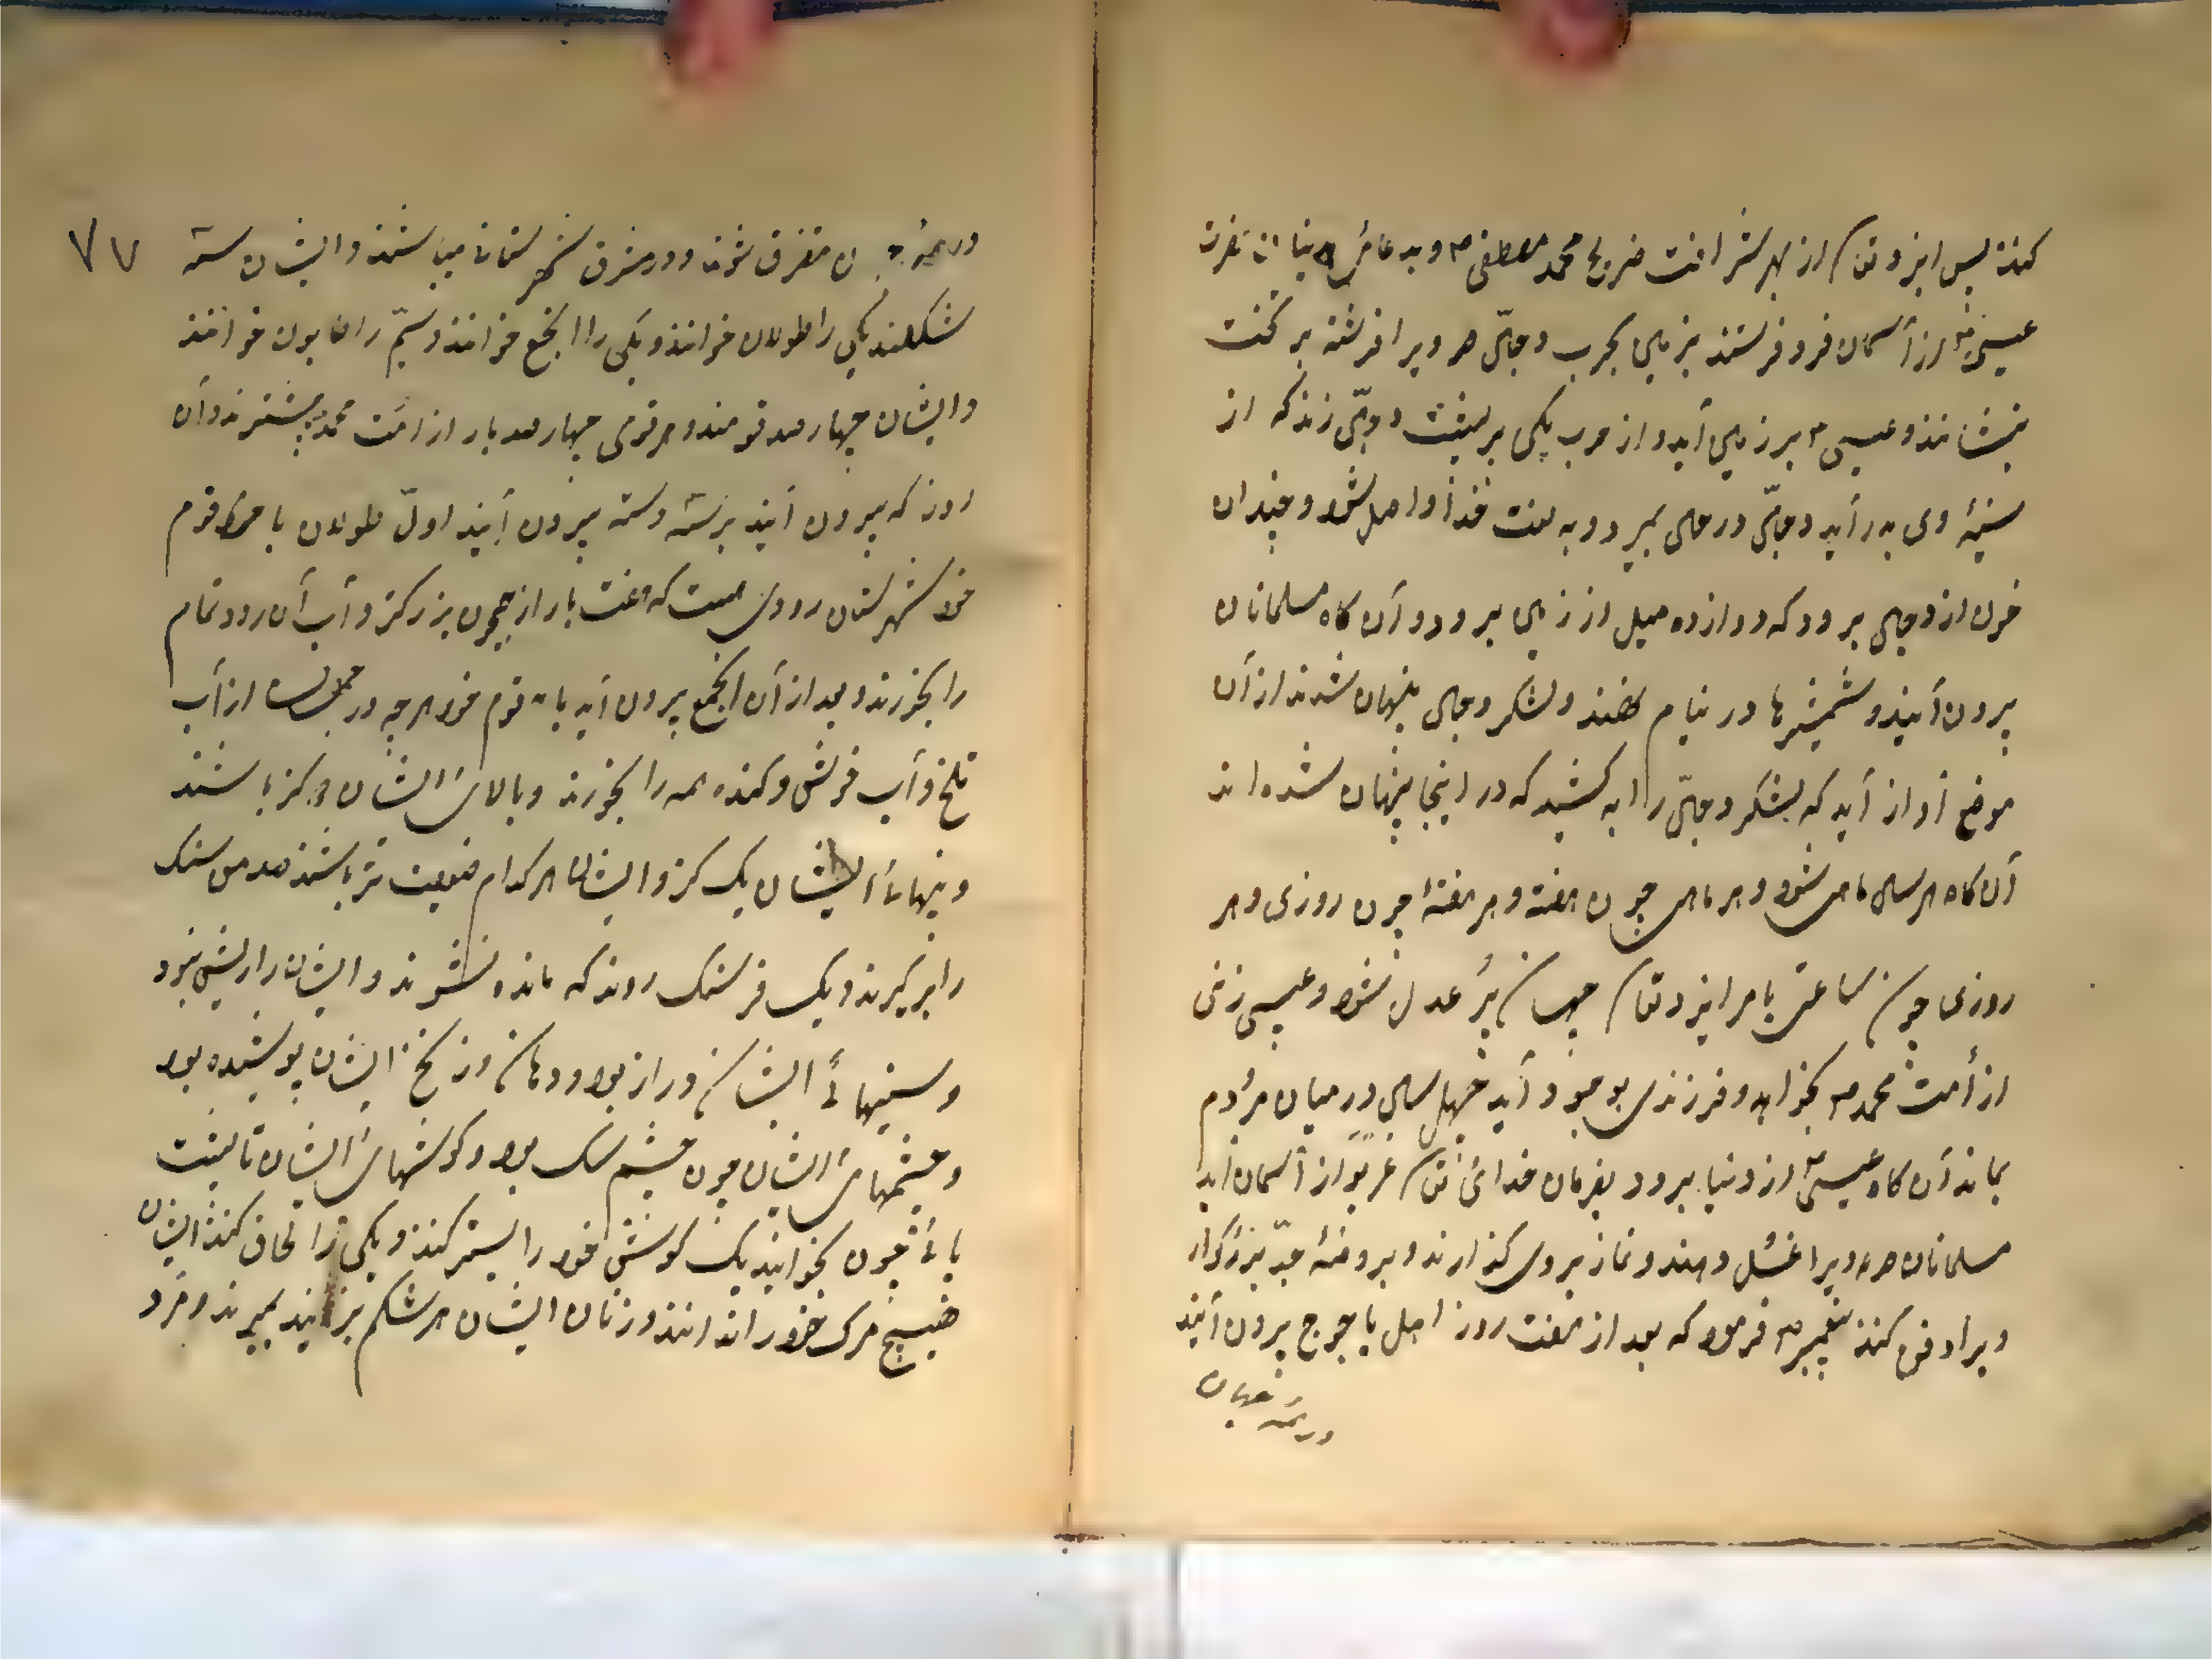 کنند پس ایزد تعا از بهر شرافت محمد مصطفی و به دعای
عیسی را از آسمان فرو فرستند بزمین بحرب دجال هر ویرا فرشته بر کتف
بنشانند و عیسی بر زمین آید و از حرب یکی بر پشت دجال زند که از
سینهٔ وی بدر آید دجال در حال بمیرد و به لعنت خدا واصل شود و چندان
خون از دجال برود که دوازده میل از زمین برود و آن کاه مسلمانان
بیرون آیند و شمشیرها در نیام نهند و لشکر دجال پنهان شدند از آن
موضع آواز آید که لشکر دجال را بکشید که در اینجا پنهان شده اند
آن کاه هر سال ماهی شود و هر ماهی چون هفته و هر هفتهٔ چون روزی و هر
روزی چون ساعتی بامر ایزد تعا جهان پر عدل شود و عیسی زنی
از أمت محمد بخواهد و فرزندی بوجود آید چهل سال در میان مردم
بماند آن کاه عیسی از دنیا برود بفرمان خدای تعا غریو از آسمان آید
مسلمانان مر ویرا غسل دهند و نماز بروی کذارند و بروضهٔ جد بزرکوار
ویرا دفن کنند پیغمبر فرمود که بعد از هفت روز اهل یاجوج بیرون آیند
در همه جهان
۷۷
در همه جهان متفرق شوند و در مشرق شهرستانا میباشند و ایشان سه
شکلند یکی را طولان خوانند و یکی را الجمع خوانند و سیم را خوانند
و ایشان چهار صد قومند و هر قومی چهار صد بار از امت محمد بیشترند و آن
روز که بیرون آیند برسته رسته بیرون آیند اول طولان با قوم
خود شهرستان رودی هست که هفت بار از جیحون بزرکتر و آب آن رود تمام
را بخورند و بعد از آن الجمع بیرون آید با قوم خود هر چه در از آب
تلخ و آب خوش و کنده همه را بخورند و بالای ایشان کز باشند
و پنهای ایشان یک کز و ایشان هر کدام ضعیف تر باشند صد من سنک
را برکیرند و یک فرسنک روند که مانده نشوند و ایشان را ریش نبود
و سینهای ایشان دراز بود و دهان و زنخ ایشان پوشیده بود
و چشمهای ایشان چون چشم سک بود و کوشهای ایشان تا پشت
پای چون بخوابند یک کوش خود را بستر کنند و یکی را لحاف کنند ایشان
هیچ مرک خود را ندانند و زنان ایشان هر شکم بزایند بمیرند و مرد